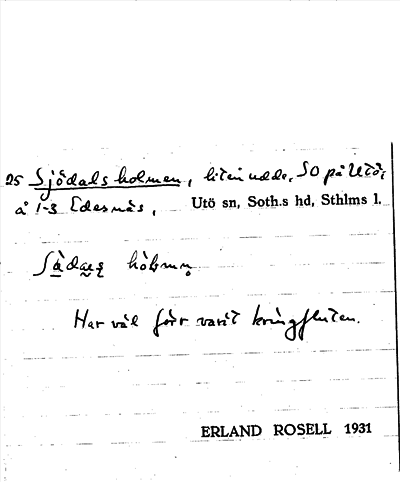 25 Sjödalsholmen, liten udde, SO på Utö,
å 1-3 Edesnäs, Utö sn, Soth.s hd, Sthlms l.
hòlmen
Har väl förr varit kringfluten.
ERLAND ROSELL 1931